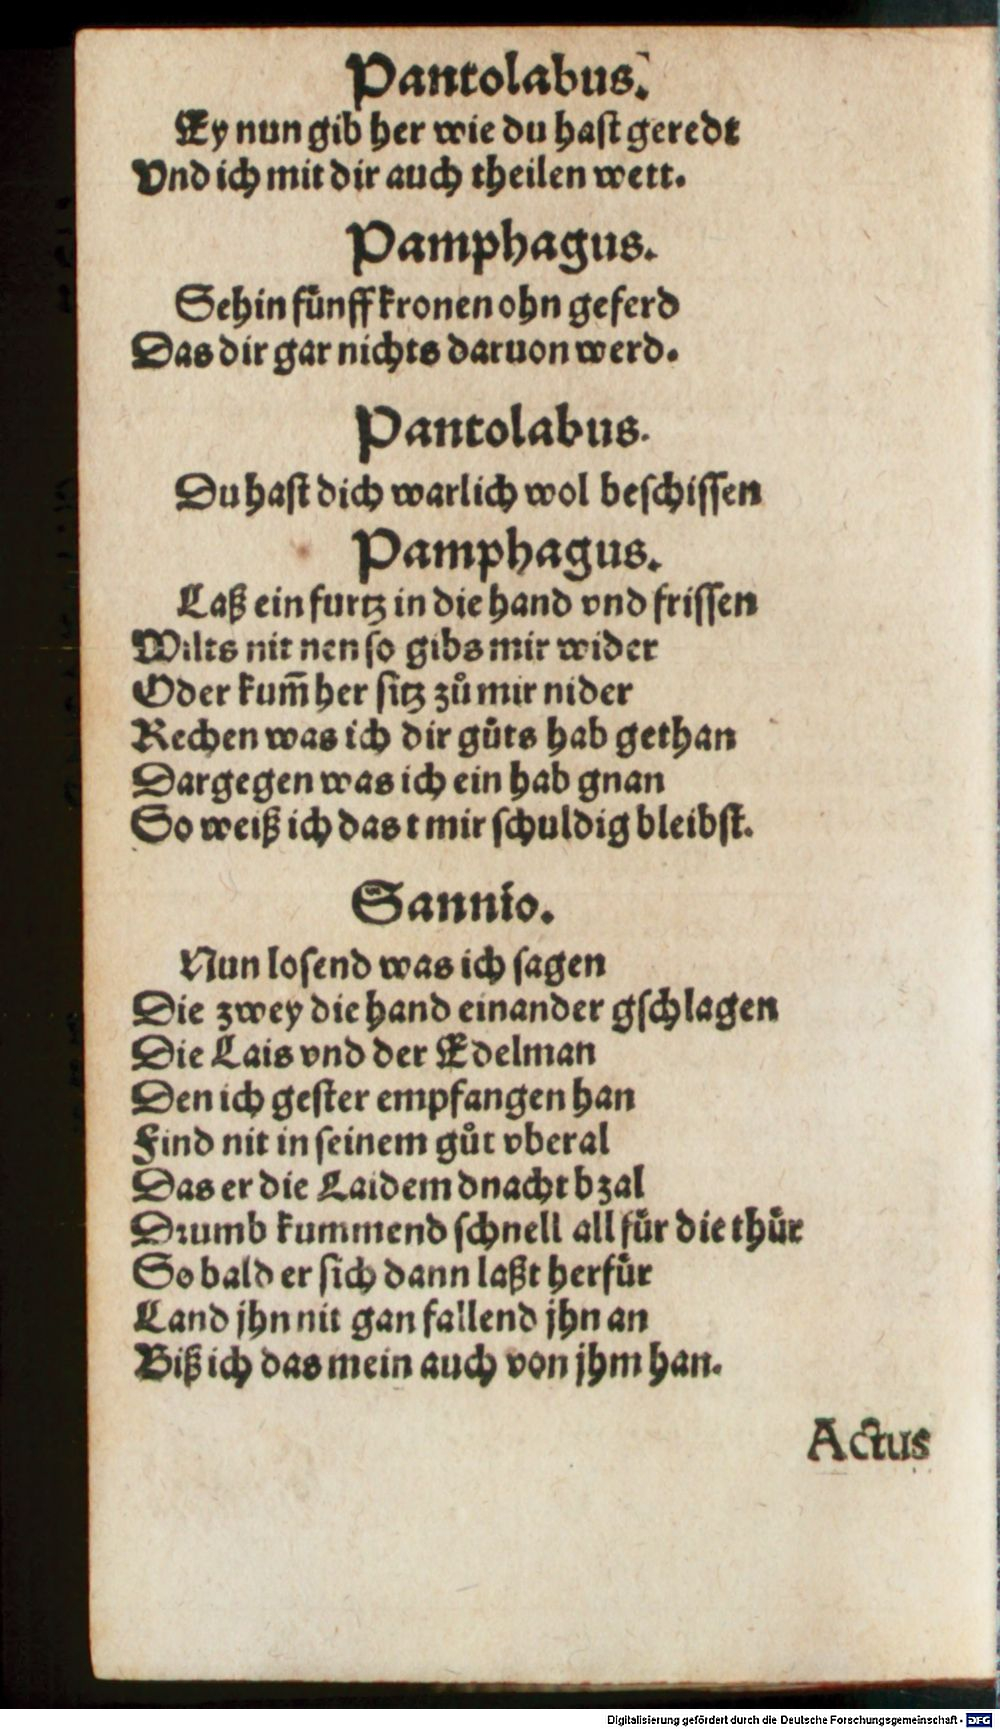 Pantolabus.
Ey nun gib her wie du hast geredt
Vnd ich mit dir auch theilen wett.
Pamphagus.
Sehin fünff kronen ohn geferd
Das dir gar nichts daruon werd.
Pantolabus.
Du hast dich warlich wol beschissen
Pamphagus.
Laß ein furtz in die hand vnd frissen
Wilts nit nen so gibs mir wider
Oder kum̃ her sitz zů mir nider
Rechen was ich dir gůts hab gethan
Dargegen was ich ein hab gnan
So weiß ich das t mir schuldig bleibst.
Sannio.
Nun losend was ich sagen
Die zwey die hand einander gschlagen
Die Lais vnd der Edelman
Den ich gester empfangen han
Find nit in seinem gůt vberal
Das er die Laidem dnacht bzal
Drumb kummend schnell all für die thür
So bald er sich dann laßt herfür
Land jhn nit gan fallend jhn an
Biß ich das mein auch von jhm han.
Actus
Digitalisierung gefördert durch die Deutsche Forschungsgemeinschaft - DFG